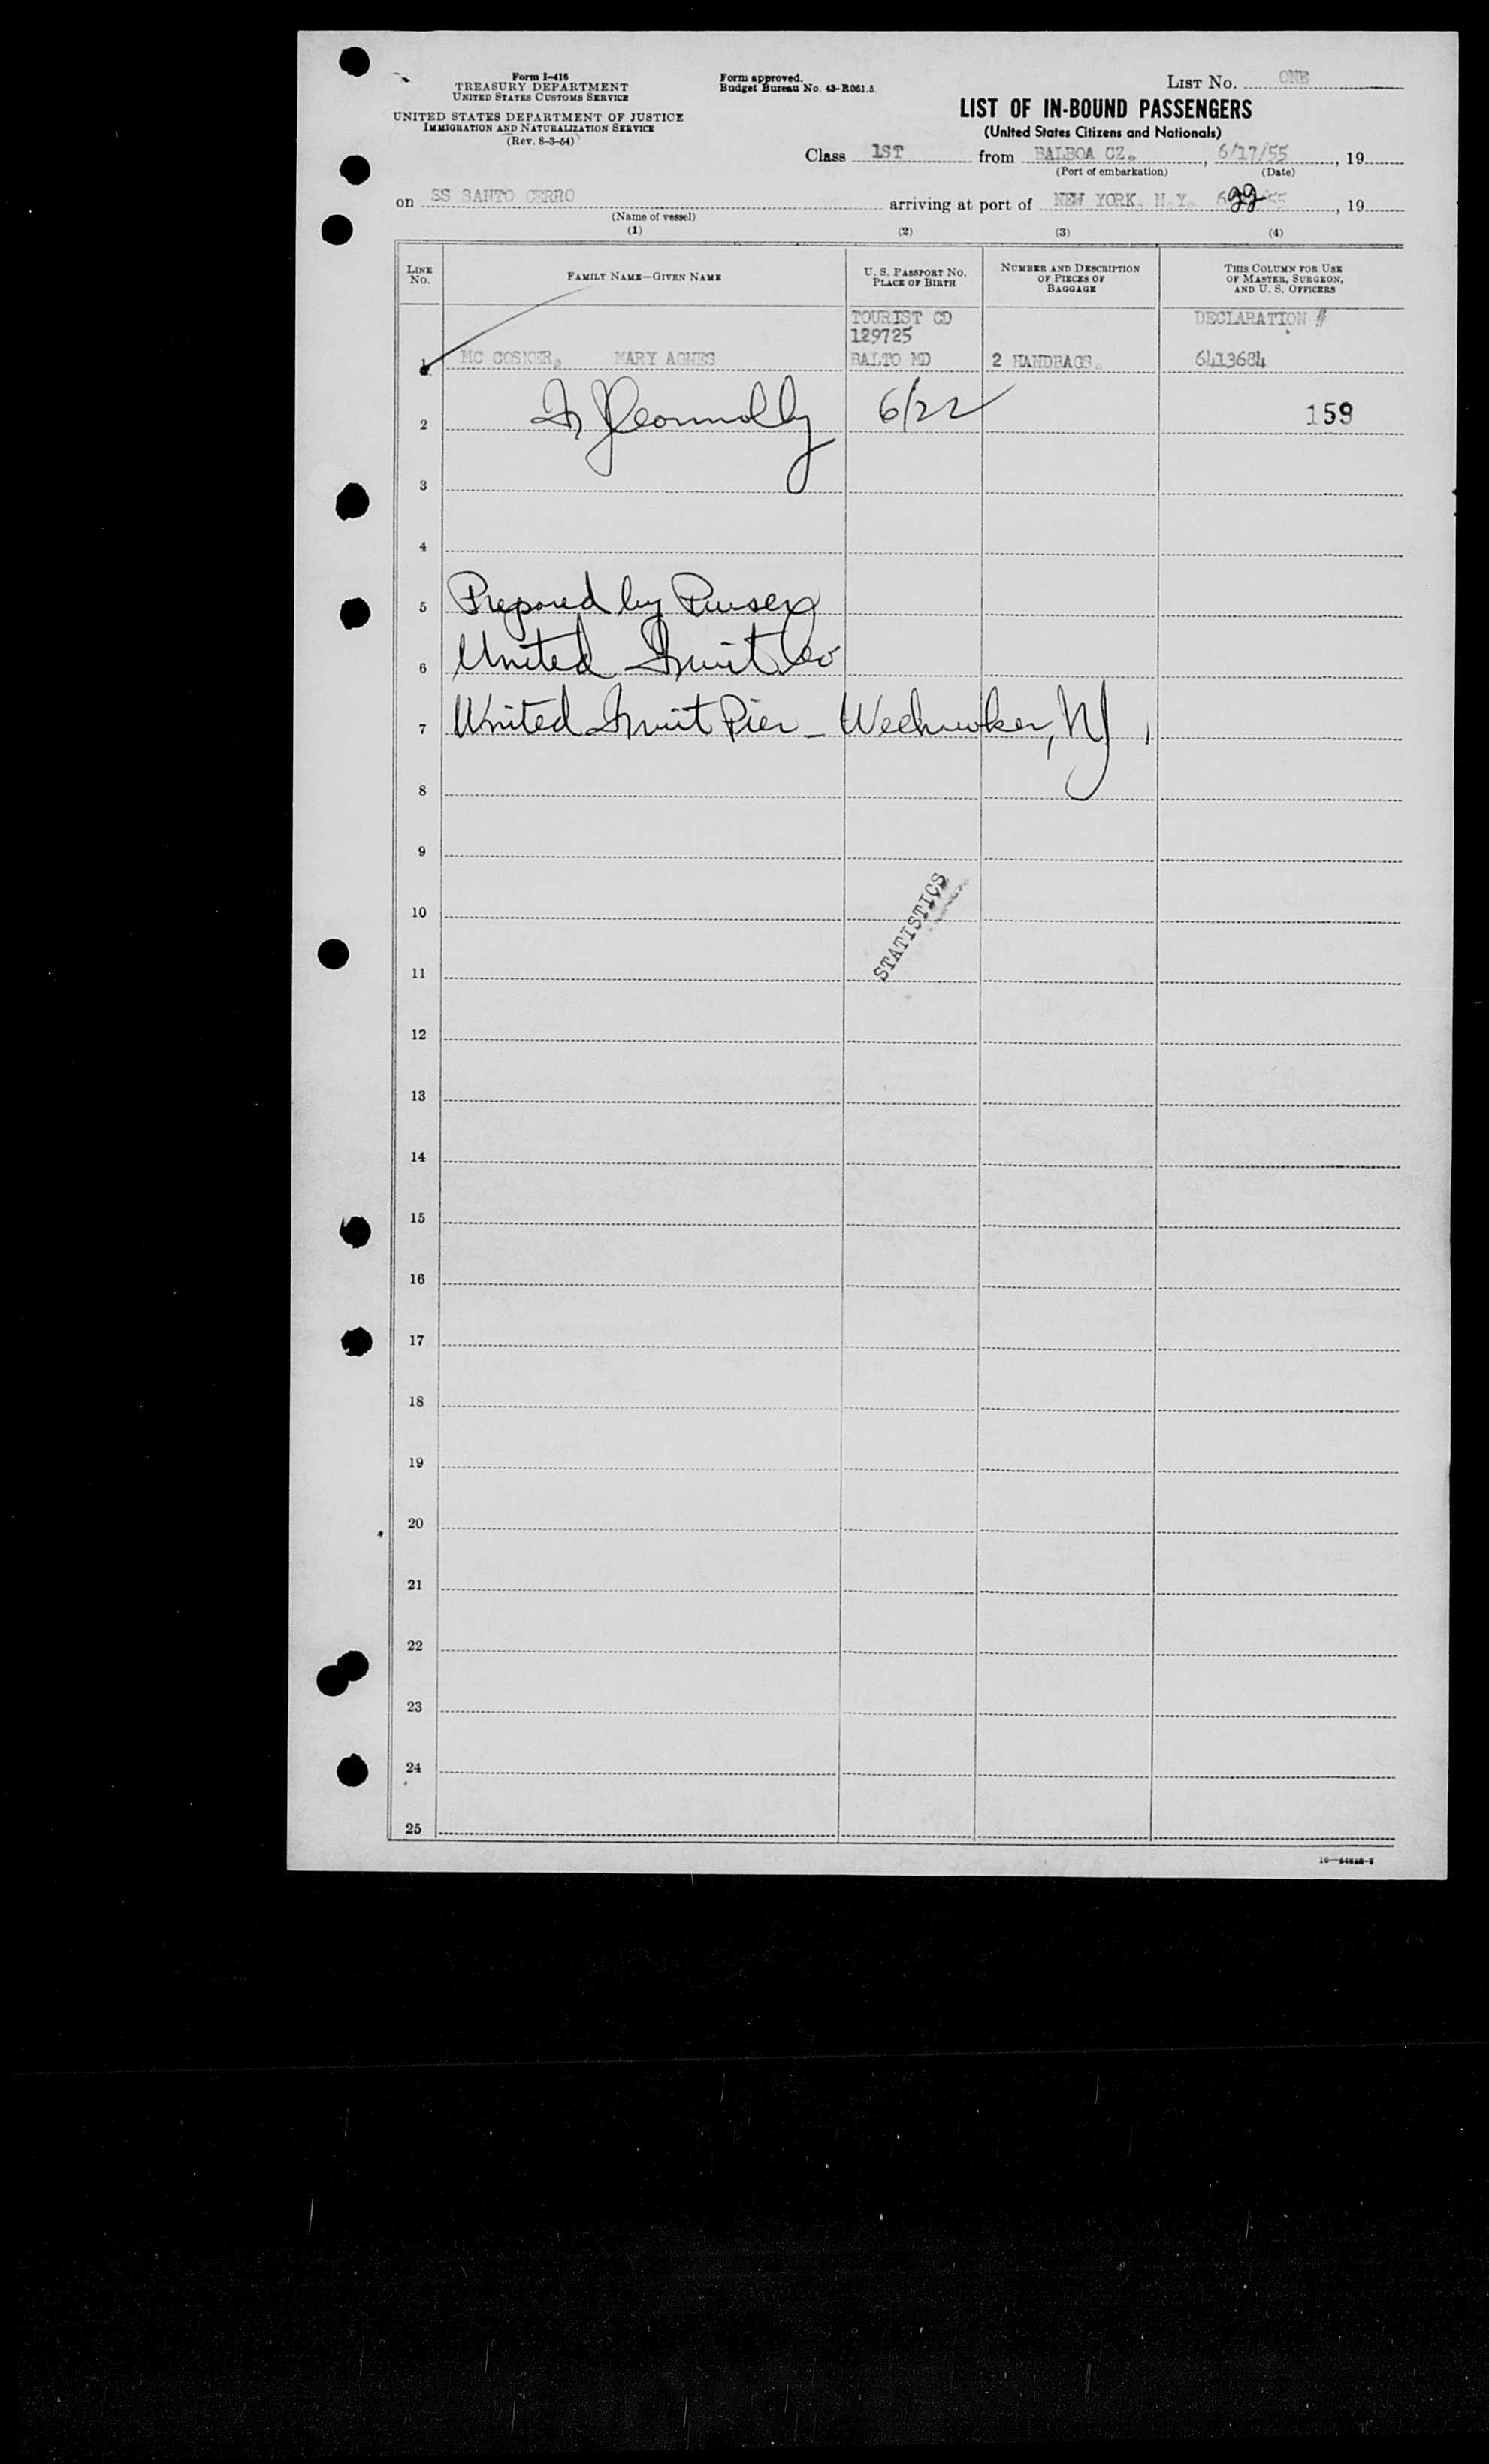 Form I-416
TREASURY DEPARTMENT
UNITED STATES CUSTOMS SERVICE
UNITED STATES DEPARTMENT OF JUSTICE
IMMIGRATION AND NATURALIZATION SERVICE
(Rev. 8-3-54)
Form approved.
Budget Bureau No. 43-R061.5.
LIST NO. ONE
LIST OF IN-BOUND PASSENGERS
(United States Citizens and Nationals)
Class 1ST from BALBOA CZ. , 6/17/55 , 19
(Port of embarkation) (Date)
on SS SANTO CERRO arriving at port of NEW YORK. N.Y. 6 22 55 , 19
(Name of vessel)
(1) (2) (3) (4)
LINE NO. FAMILY NAME—GIVEN NAME U. S. PASSPORT NO. PLACE OF BIRTH NUMBER AND DESCRIPTION OF PIECES OF BAGGAGE THIS COLUMN FOR USE OF MASTER, SURGEON, AND U. S. OFFICERS
TOURIST CD DECLARATION #
129725
1 MC COSKER, MARY AGNES BALTO MD 2 HANDBAGS. 6413684
2 Connolly 6/22 159
3
4
5 Prepared by Purser
6 United Fruit Co
7 United Fruit Pier - Weehawken, NJ
8
9
10
STATISTICS
11
12
13
14
15
16
17
18
19
20
21
22
23
24
25